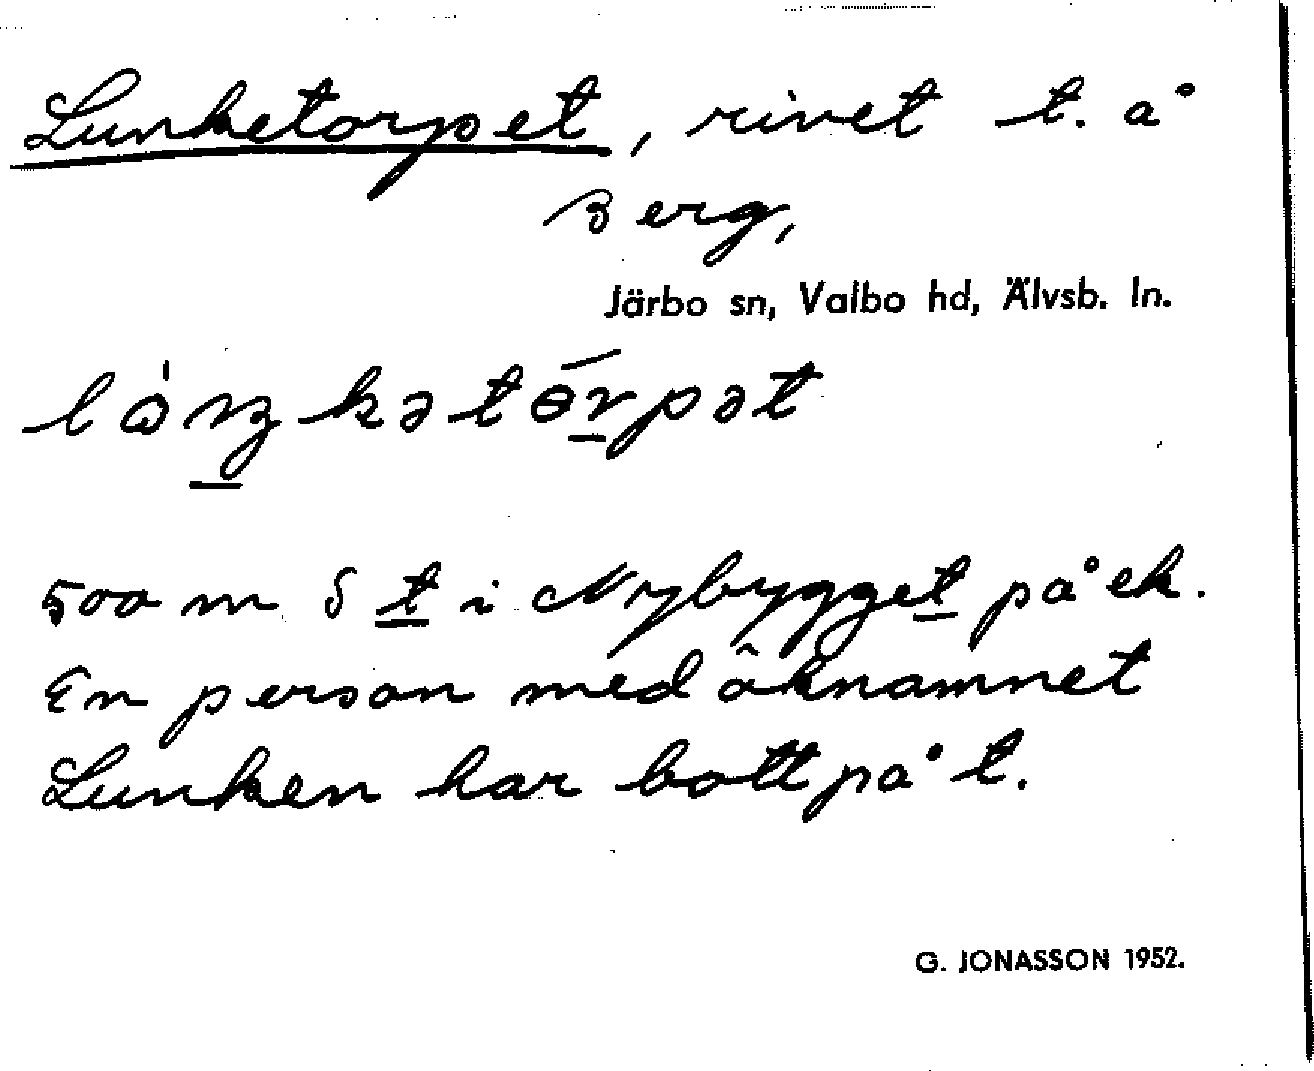 Lunketorpet, rivet t. å
Berg,
Järbo sn, Valbo hd, Älvsb. ln.
500 m S t i Nybygget på ek.
En person med öknamnet
Lunken har bott på t.
G. JONASSON 1952.